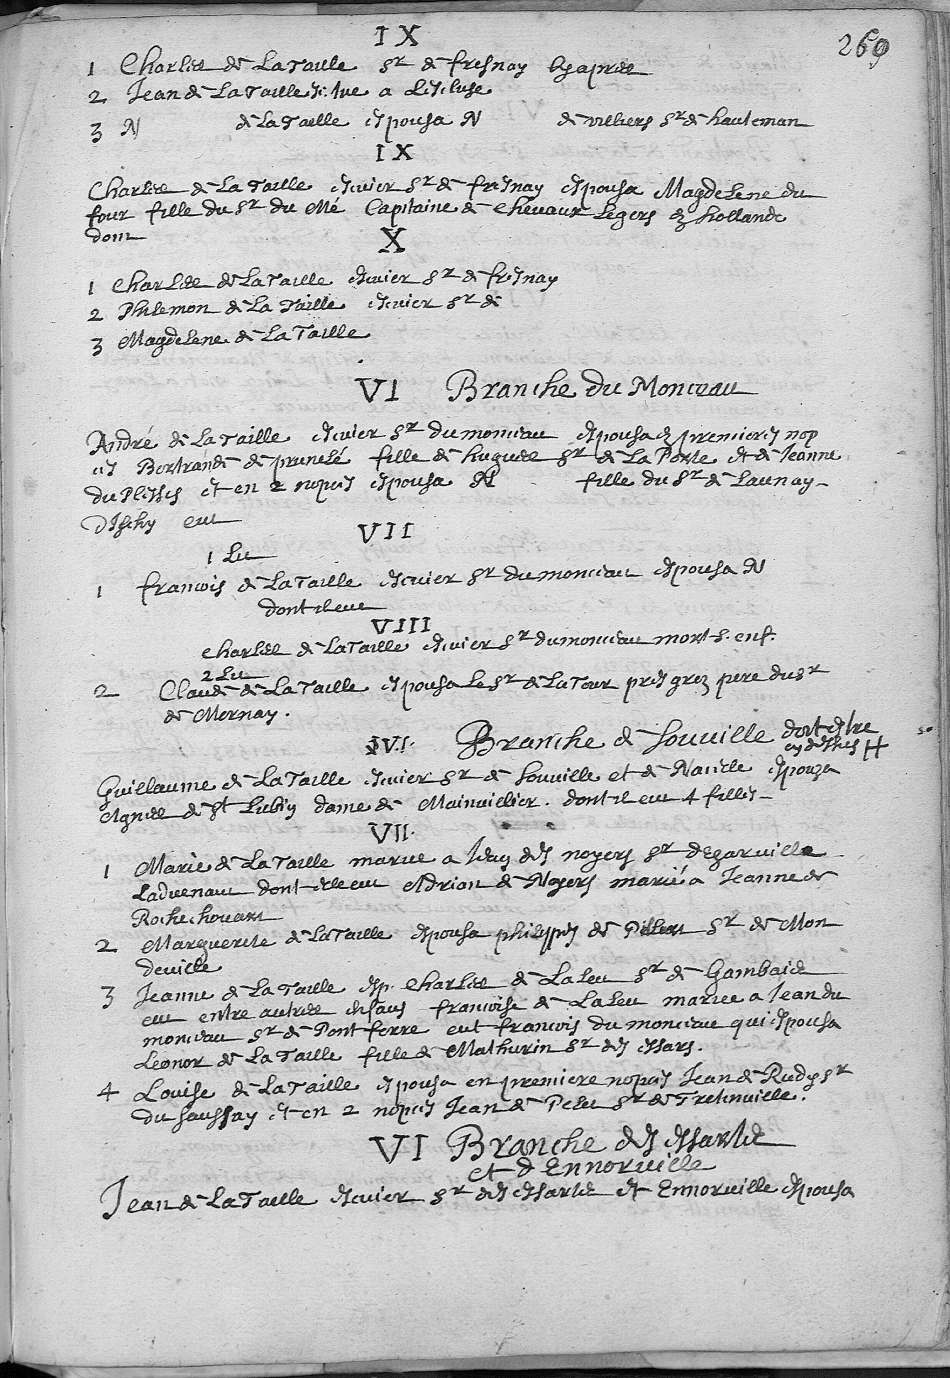 269
IX
1 Charles de La Taille Sr de fresnay cy apres
2 Jean de La Taille tue a L'escluse
3 N de La Taille espousa N de villiers Sr de hauteman
IX
Charles de La Taille escuier Sr de fresnay espousa Magdelene du
four fille du Sr du Mé Capitaine de Chevaux Legers en hollande
dont
X
1 Charles de La Taille escuier Sr de fresnay
2 Philemon de La Taille escuier Sr de
3 Magdelene de La Taille
VI Branche du Monceau
André de La Taille escuier Sr du monceau espousa en premieres nop
ces Bertrande de prunelé fille de hugues Sr de La Porte et de Jeanne
du Plessis et en 2 nopces espousa N fille du Sr de Launay
eut
VII
1 Lit
1 francois de La Taille escuier Sr du monceau espousa N
dont il eut
VIII
Charles de La Taille escuier Sr du monceau mort s. enf.
2 Lit
2 Claude de La Taille espousa le Sr de La Tour pres grez pere du Sr
de Mornay.
VI. Branche de souville doit estre
H
Guillaume de La Taille escuier Sr de souville et de espouza
Agnes de St Lubin dame de Mainvielier. dont il eut 4 filles
VII.
1 Marie de La Taille mariee a des noyers Sr
dont elle eut Adrian de Noyers marié a Jeanne de
Rochechouart
2 Marguerite de La Taille espousa philippes de Sr de Mon
deville
3 Jeanne de La Taille esp. Charles de La Leu Sr de Gambaie
eut entre autres enfans francoise de La Leu mariee a Jean du
monceau Sr de Pont ferre eut francois du monceau qui espousa
Leonor de La Taille fille de Mathurin Sr des essars.
4 Louise de La Taille espousa en premiere nopces Jean de Sr
du saussay et en 2 nopces Jean de Sr de
VI Branche des essartes
et d'Ennorville
Jean de La Taille escuier Sr des essartes et Ennorville espousa